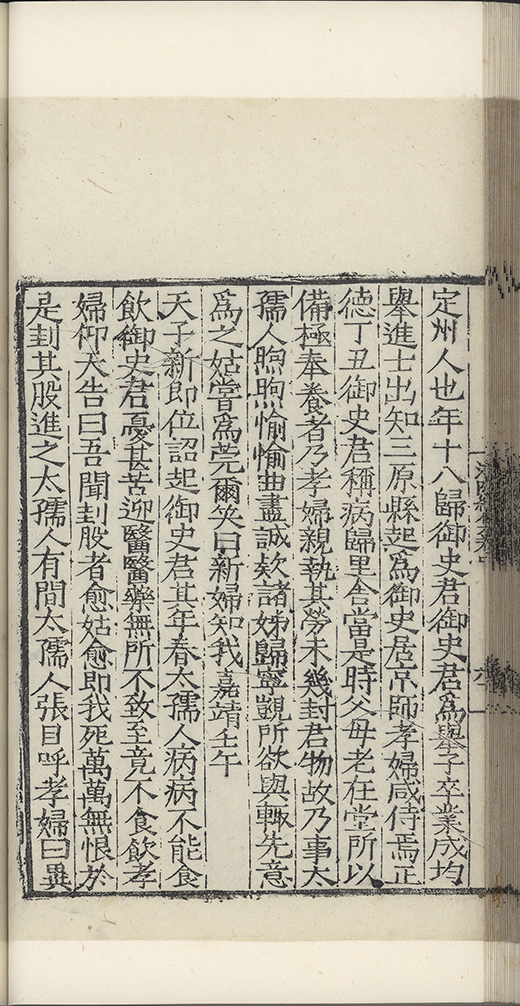 定州人也年十八歸御史君御史君為舉子卒業成均
舉進士出知三原縣起為御史居京師孝婦咸侍焉正
德丁丑御史君稱病歸里舍當是時父母老在堂所以
備極奉養者乃孝婦親執其勞未幾封君物故乃事太
孺人喣喣愉愉曲盡誠欵諸姊歸寧覬所欲與輒先意
為之姑嘗為莞爾笑曰新婦知我嘉靖壬午
天子新即位詔起御史君其年春太孺人病病不能食
飲御史君憂甚苦迎醫醫藥無所不致至竟不食飲孝
婦仰天告曰吾聞刲股者愈姑愈即我死萬萬無恨於
是刲其股進之太孺人有間太孺人張目呼孝婦曰異